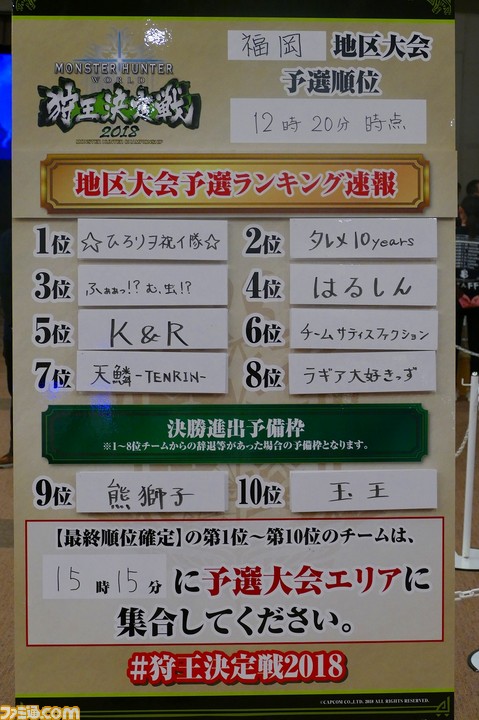 福岡 地区大会
予選順位
12時20分 時点
MONSTER HUNTER
WORLD
狩王決定戦
2018
MONSTER HUNTER CHAMPIONSHIP
地区大会予選ランキング速報
1位 ☆ひろりヲ祝イ隊☆ 2位 タレメ10years
3位 ふぁぁっ!?む、虫!? 4位 はるしん
5位 K&R 6位 チームサティスファクション
7位 天鱗-TENRIN- 8位 ラギア大好きっず
決勝進出予備枠
※1~8位チームからの辞退等があった場合の予備枠となります。
9位 熊獅子 10位 玉王
【最終順位確定】の第1位~第10位のチームは、
15時15分に予選大会エリアに
集合してください。
#狩王決定戦2018
©CAPCOM CO., LTD. 2018 ALL RIGHTS RESERVED.
ファミ通.com